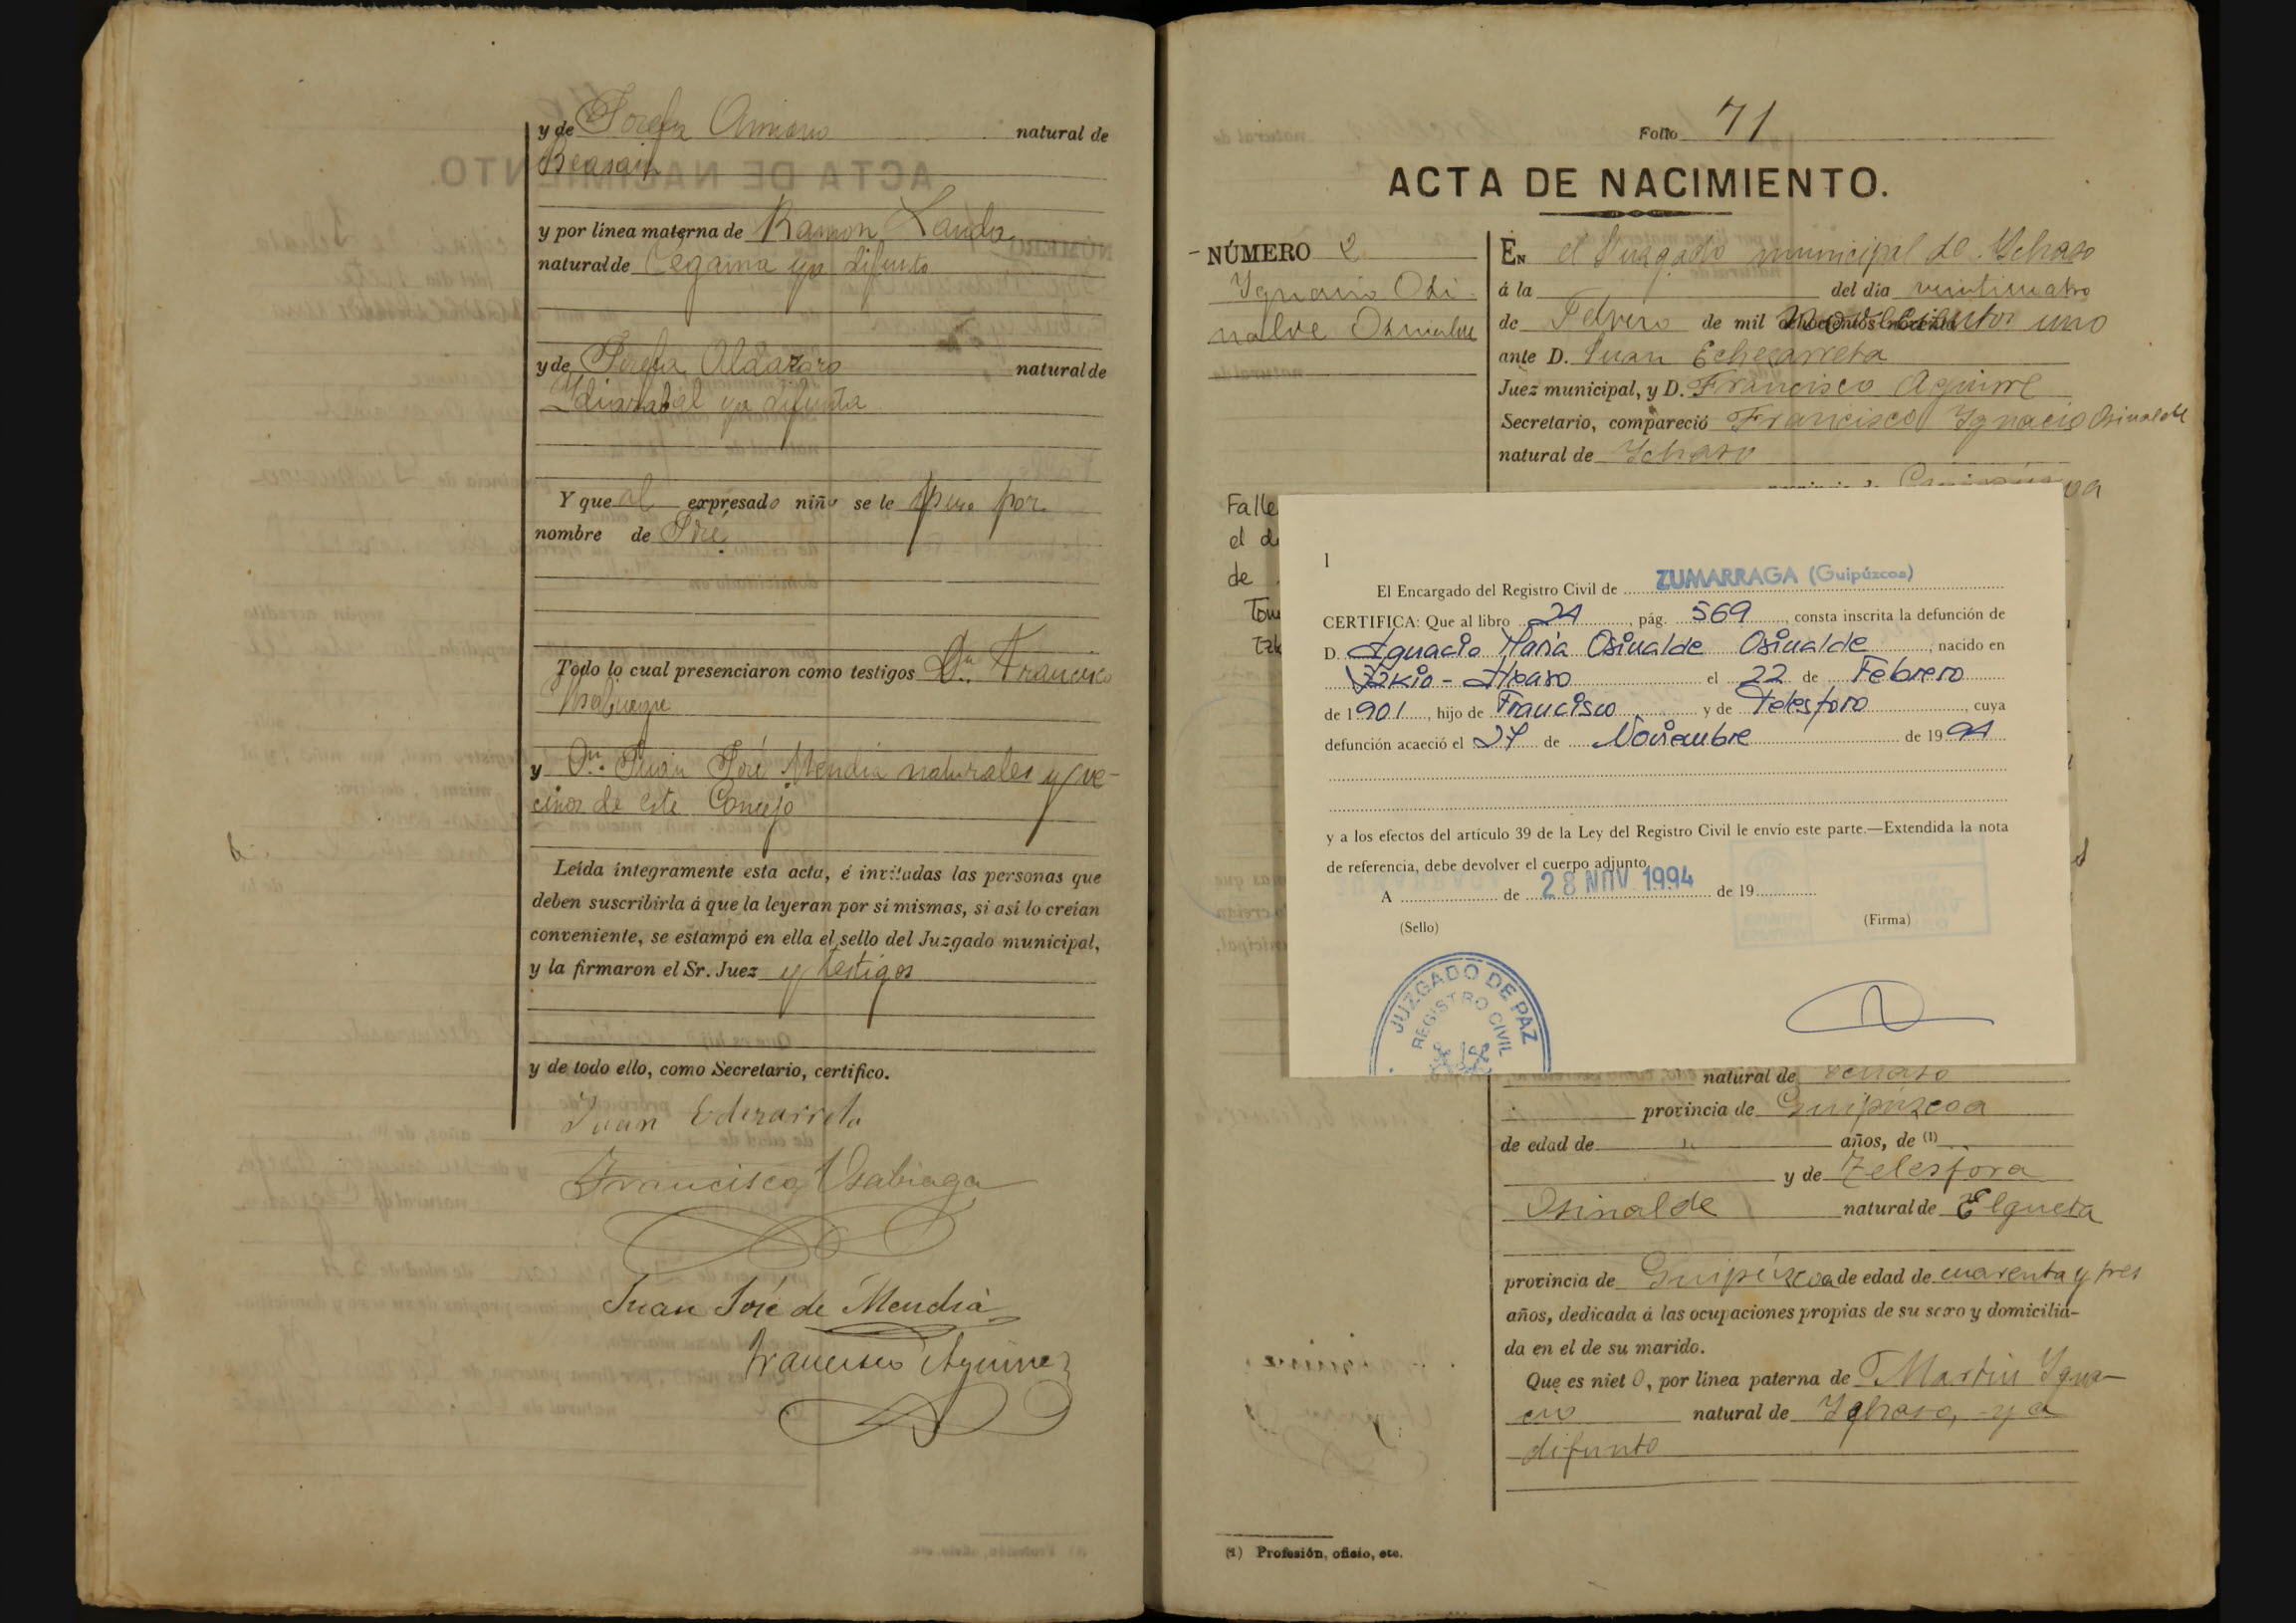 y de Josefa Aimano natural de
Beasain
y por línea materna de Ramon Landa
natural de Cegama ya difunto
y de Josefa Aldazoro natural de
Ydiazabal ya difunta
Y que al expresado niño se le puso por
nombre de José
Todo lo cual presenciaron como testigos Dn. Francisco
Usabiaga
y Dn. Juan José Mendia naturales y ve-
cinos de este Concejo
Leída íntegramente esta acta, é invitadas las personas que
deben suscribirla á que la leyeran por sí mismas, si así lo creían
conveniente, se estampó en ella el sello del Juzgado municipal,
y la firmaron el Sr. Juez y testigos
y de todo ello, como Secretario, certifico.
Juan Echezarreta
Francisco Usabiaga
Juan José de Mendia
Francisco Aguirre
Folio 71
ACTA DE NACIMIENTO.
NÚMERO 2
Ygnacio Osi-
nalde Osinalde
EN el Juzgado municipal de Ychaso
á la del día veinticuatro
de Febrero de mil novecientos uno
ante D. Juan Echezarreta
Juez municipal, y D. Francisco Aguirre
Secretario, compareció Francisco Ygnacio Osinalde
natural de Ychaso
Falle
el d
de
Tom
1
El Encargado del Registro Civil de ZUMARRAGA (Guipúzcoa)
CERTIFICA: Que al libro 24, pág. 569, consta inscrita la defunción de
D. Ignacio María Osinalde Osinalde, nacido en
Itxaso el 22 de Febrero
de 1901, hijo de Francisco y de Telesforo, cuya
defunción acaeció el 27 de Noviembre de 1994
y a los efectos del artículo 39 de la Ley del Registro Civil le envío este parte.—Extendida la nota
de referencia, debe devolver el cuerpo adjunto.
A de 28 NOV. 1994 de 19
(Sello) (Firma)
JUZGADO DE PAZ
REGISTRO CIVIL
natural de Ychaso
provincia de Guipúzcoa
de edad de " años, de (1)
y de Telesfora
Osinalde natural de Elgueta
provincia de Guipúzcoa de edad de cuarenta y tres
años, dedicada á las ocupaciones propias de su sexo y domicilia-
da en el de su marido.
Que es nieto, por línea paterna de Martin Ygna-
cio natural de Ychaso, ya
difunto
(1) Profesión, oficio, etc.